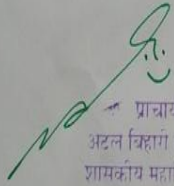 प्राचार्य
अटल बिहारी
शासकीय महा